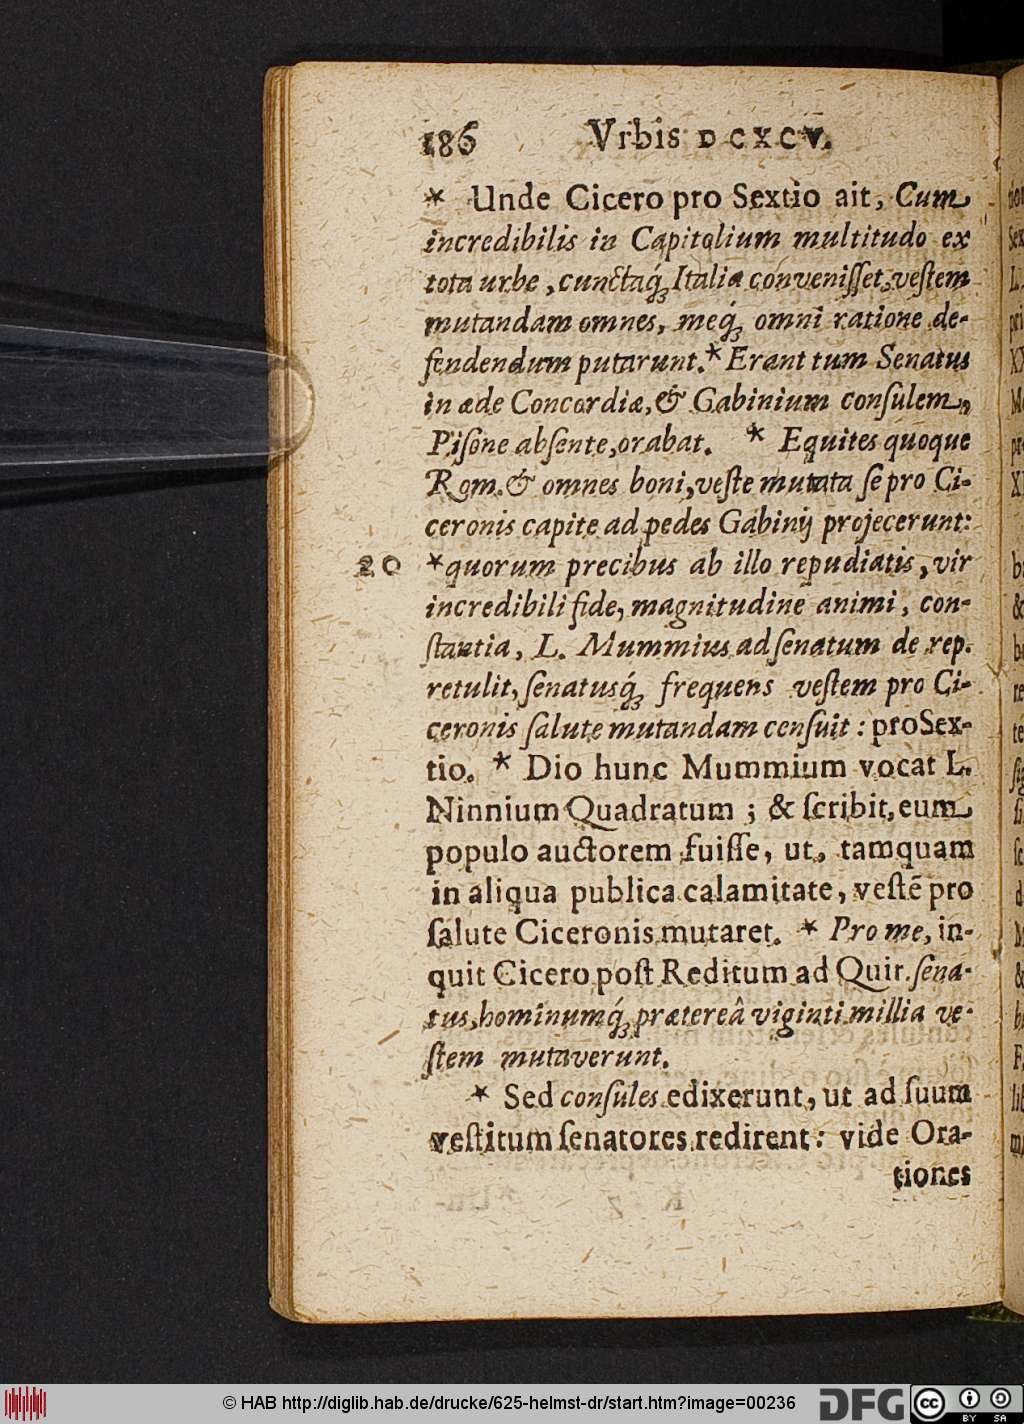 186 Vrbis DCXCV.
* Unde Cicero pro Sextio ait, Cum
incredibilis in Capitolium multitudo ex
tota urbe, cunctaq́; Italia conveniſſet, veſtem
mutandam omnes, meq́; omni ratione de-
fendendum putarunt. * Erant tum Senatus
in æde Concordiæ, & Gabinium conſulem,
Piſone abſente, orabat. * Equites quoque
Rom. & omnes boni, veſte mutata ſe pro Ci-
ceronis capite ad pedes Gabinij projecerunt:
20 * quorum precibus ab illo repudiatis, vir
incredibili fide, magnitudine animi, con-
ſtantia, L. Mummius ad ſenatum de rep.
retulit, ſenatusq́; frequens veſtem pro Ci-
ceronis ſalute mutandam cenſuit: pro Sex-
tio. * Dio hunc Mummium vocat L.
Ninnium Quadratum; & ſcribit, eum
populo auctorem fuiſſe, ut, tamquam
in aliqua publica calamitate, veſtē pro
ſalute Ciceronis mutaret. * Pro me, in-
quit Cicero poſt Reditum ad Quir. ſena-
tus, hominumq́; prætereâ viginti millia ve-
ſtem mutaverunt.
* Sed conſules edixerunt, ut ad ſuum
veſtitum ſenatores redirent: vide Ora-
tiones
© HAB http://diglib.hab.de/drucke/625-helmst-dr/start.htm?image=00236 DFG cc BY SA